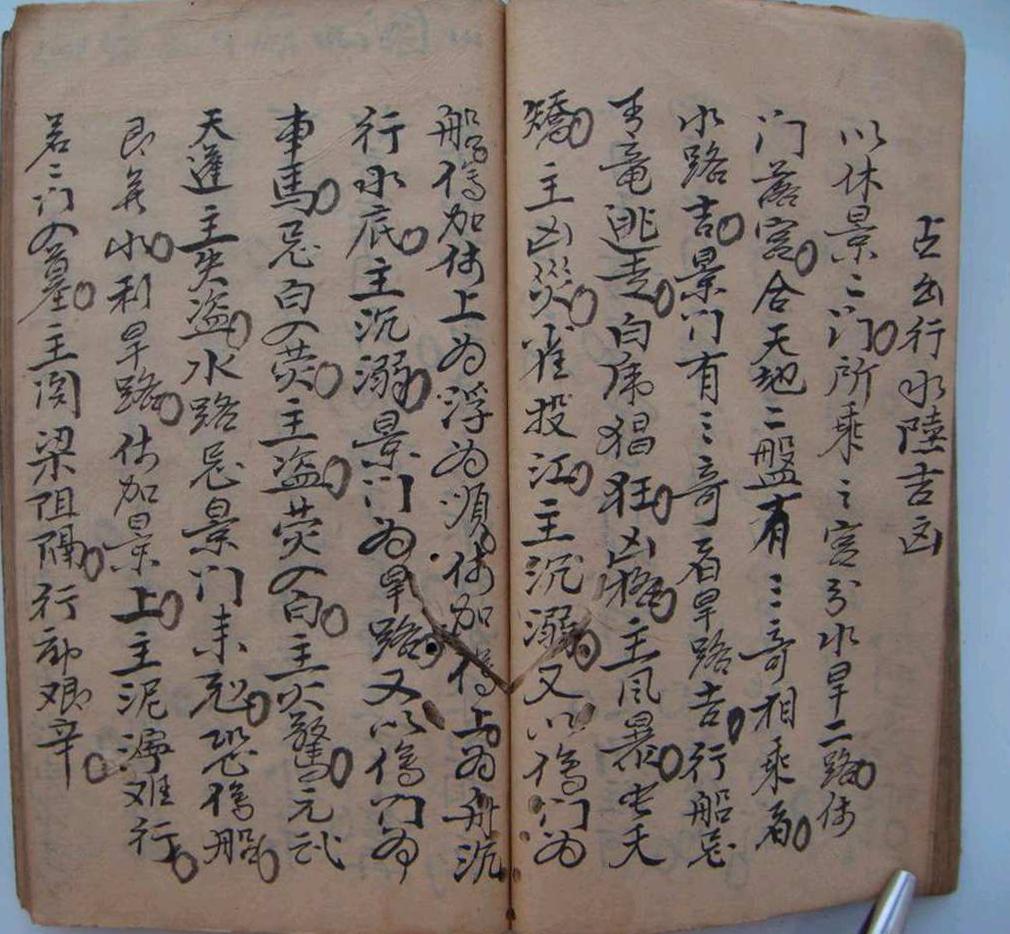 占出行水陸吉凶
以休景二门所乘之宫分水旱二路休
门落宫合天地二盤有三奇相乘者
水路吉景门有三奇者旱路吉行船忌
青竜逃走白虎猖狂凶格主风暴蛇夭
矯主凶災雀投江主沉溺又以傷门为
船傷加休上为浮为順休加傷上为舟沉
行水底主沉溺景门为旱路又以傷门为
車馬忌白入荧主盗荧入白主火驚元武
天蓬主失盗水路忌景门来尅恐傷船
即无水利旱路休加景上主泥濘难行
若二门入墓主関梁阻隔行动艰辛